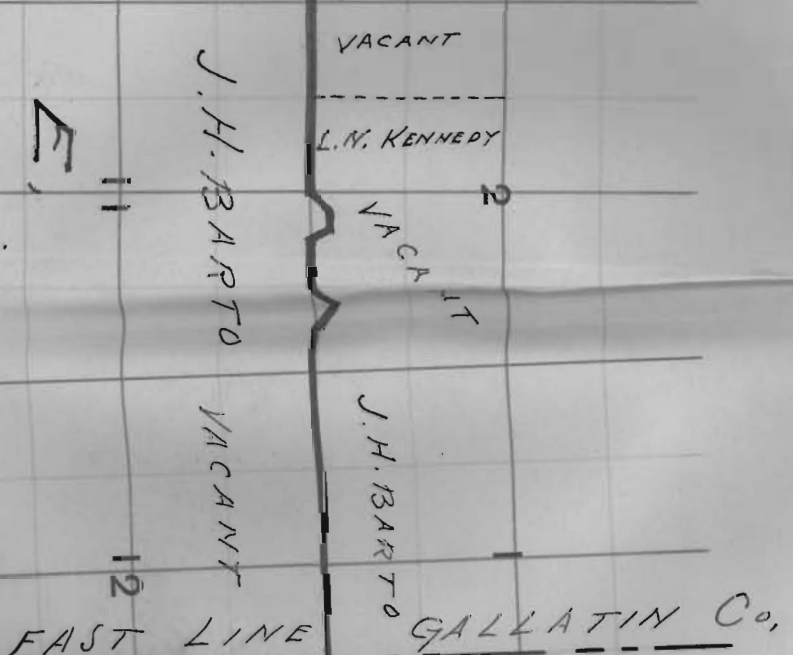 VACANT
L.N. KENNEDY
E.
11
J.H. BARTO
2
VACANT
VACANT
J.H. BARTO
12
1
EAST LINE GALLATIN Co,